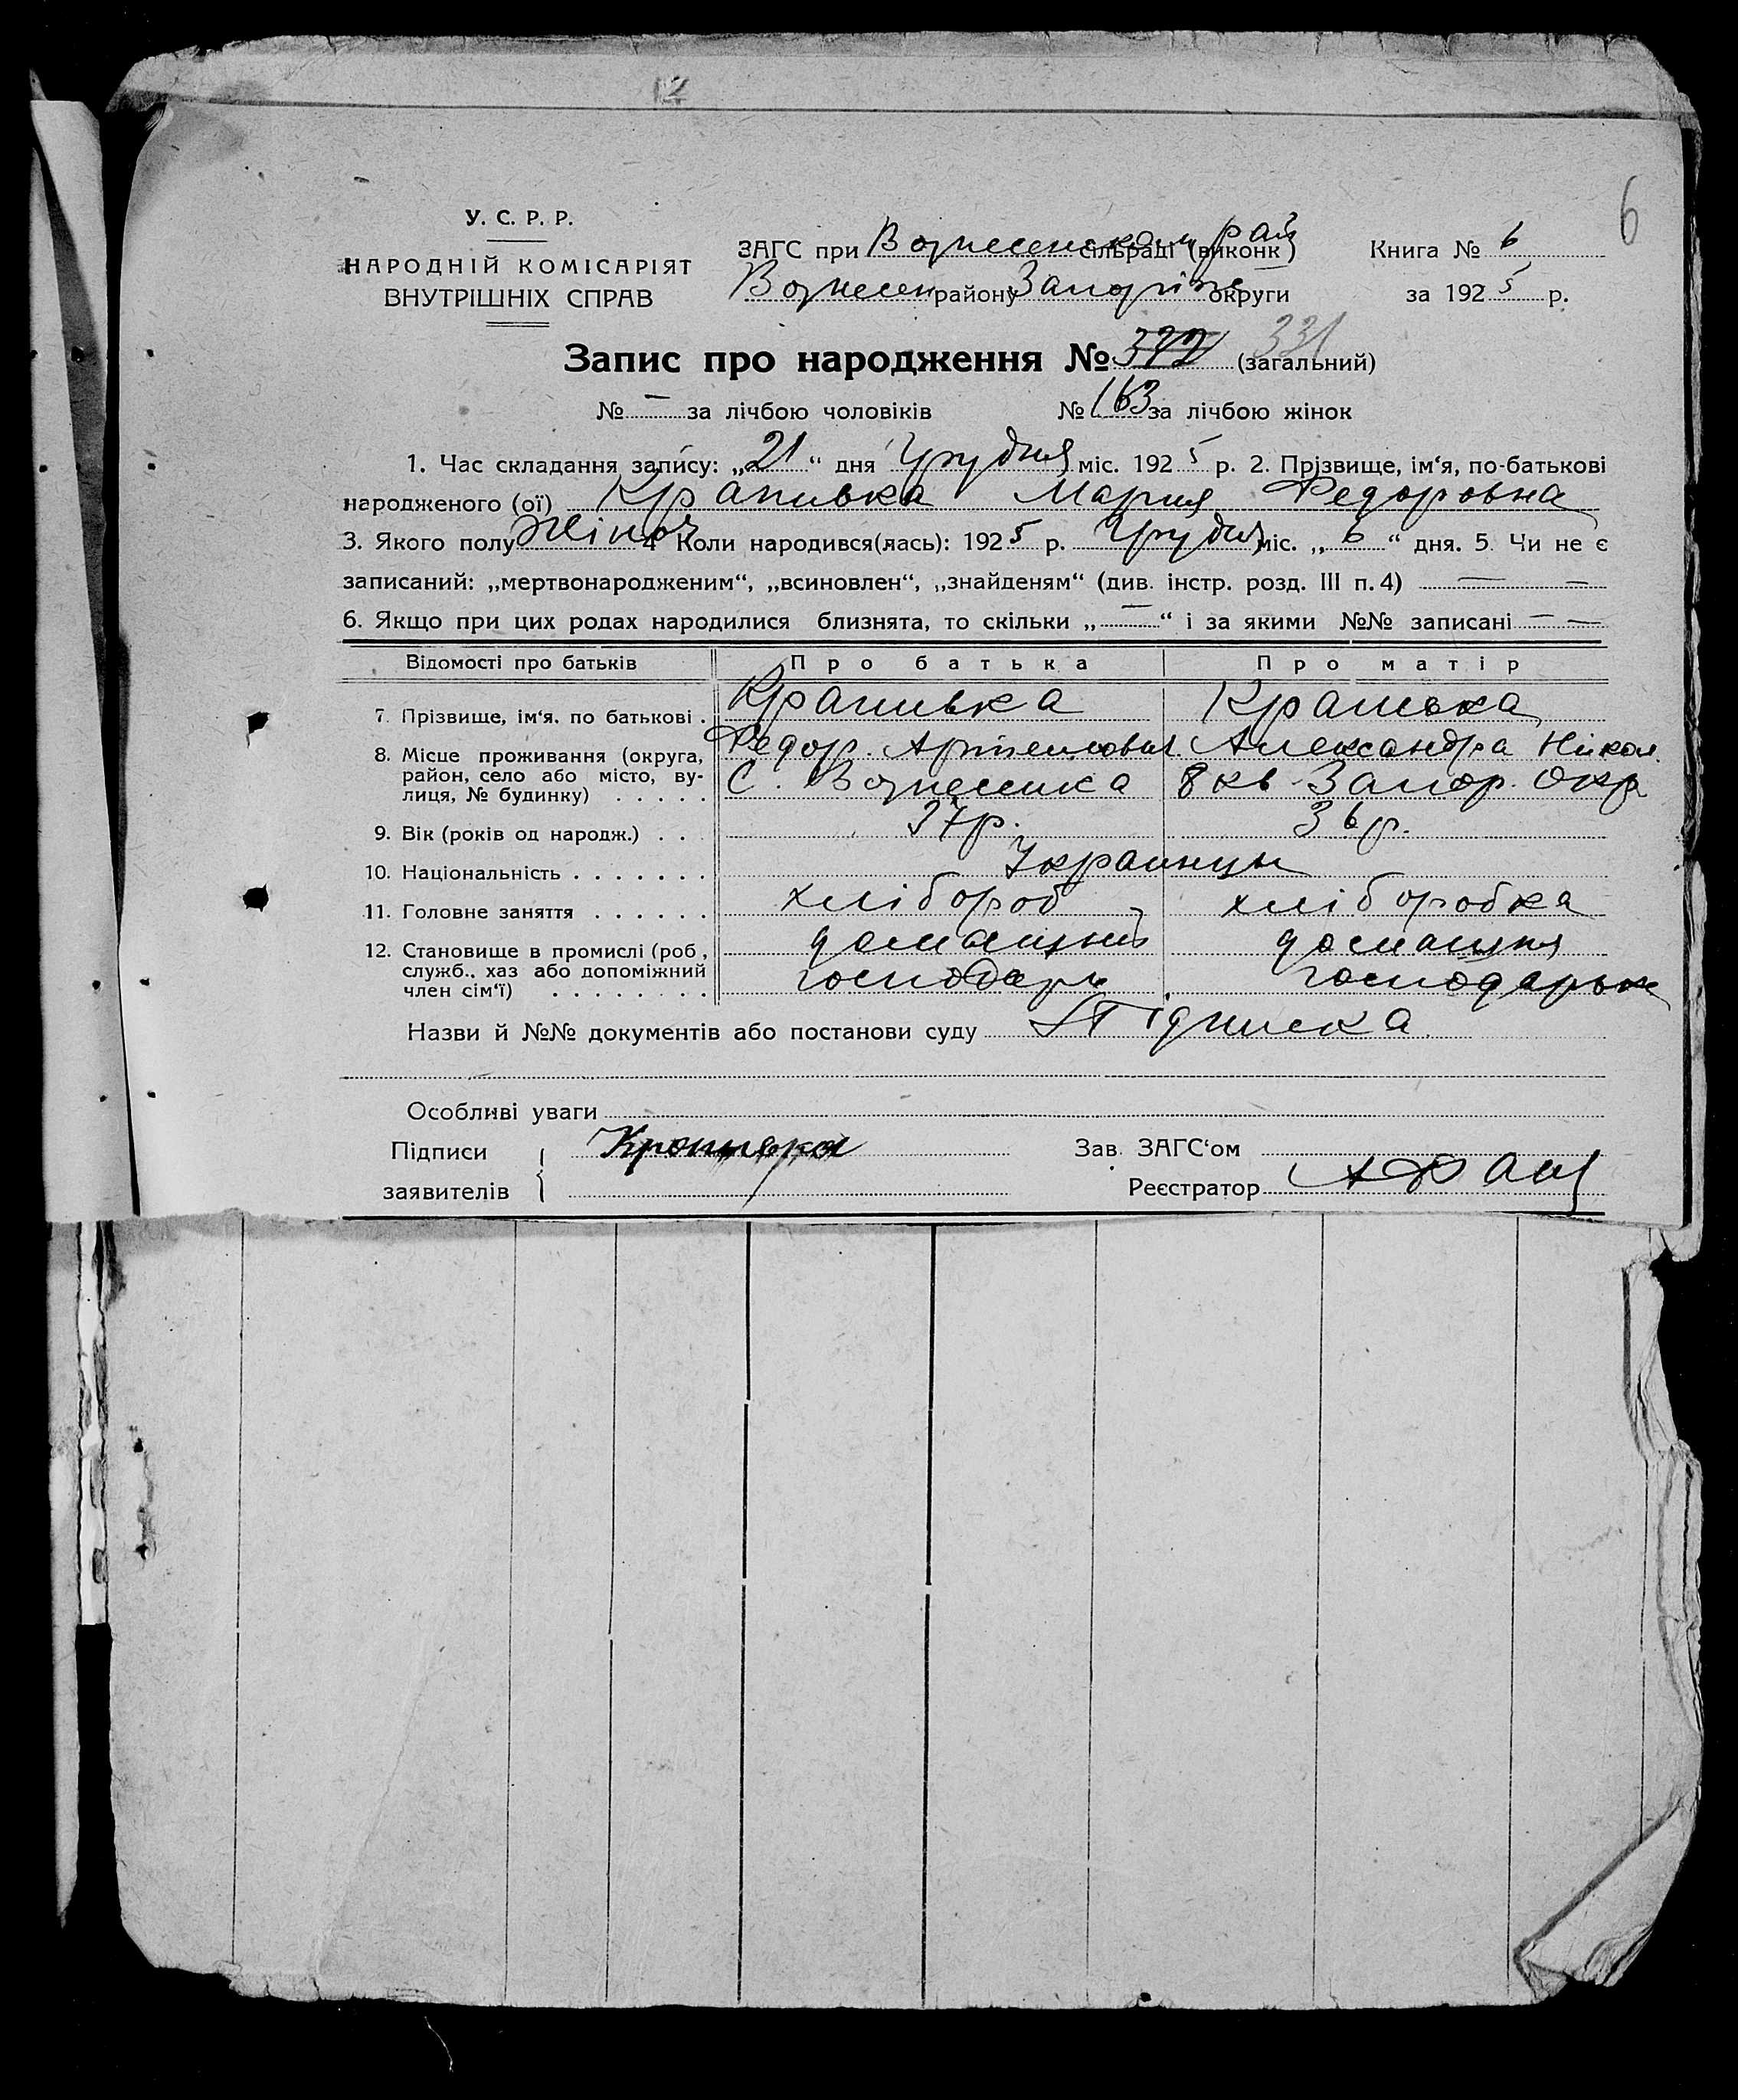 12
6
У. С. Р. Р.
НАРОДНІЙ КОМІСАРІЯТ
ВНУТРІШНІХ СПРАВ
ЗАГС при Вознесенском рай сільраді (виконк)
Вознесен району Запоріж округи
Книга № 6
за 1925 р.
Запис про народження № 322 331 (загальний)
№ — за лічбою чоловіків № 163 за лічбою жінок
1. Час складання запису: „21“ дня Грудня міс. 1925 р. 2. Прізвище, ім‘я, по-батькові
народженого (ої) Крапивка Мария Федоровна
3. Якого полу Жіноч 4 Коли народився(лась): 1925 р. Грудня міс. „6“ дня. 5. Чи не є
записаний: „мертвонародженим“, „всиновлен“, „знайденям“ (див. інстр. розд. III п. 4) — —
6. Якщо при цих родах народилися близнята, то скільки „—“ і за якими №№ записані — —
Відомості про батьків Про батька Про матір
7. Прізвище, ім‘я. по батькові . Крапивка Крапивка
Федор. Артемович. Александра Никол.
8. Місце проживання (округа,
район, село або місто, ву-
лиця, № будинку) . . . . . С. Вознесенка 8 кв Запор. Окр
9. Вік (років од народж.) . . . 37 р. 36 р.
10. Національність . . . . . . . Украинцы
11. Головне заняття . . . . . . хлібороб хлібо­робка
12. Становище в промислі (роб,
служб., хаз або допоміжний
член сім‘ї) . . . . . . . .
домашний домашня
господарь господарька
Назви й №№ документів або постанови суду Підписка
Особливі уваги
Підписи
заявителів
Крапивка
Зав. ЗАГС‘ом
Реєстратор